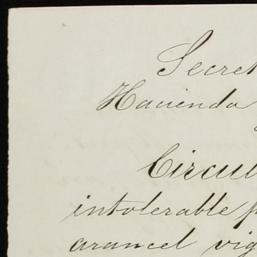 Secret
Hacienda
Circul
intolerable p
arancel vig